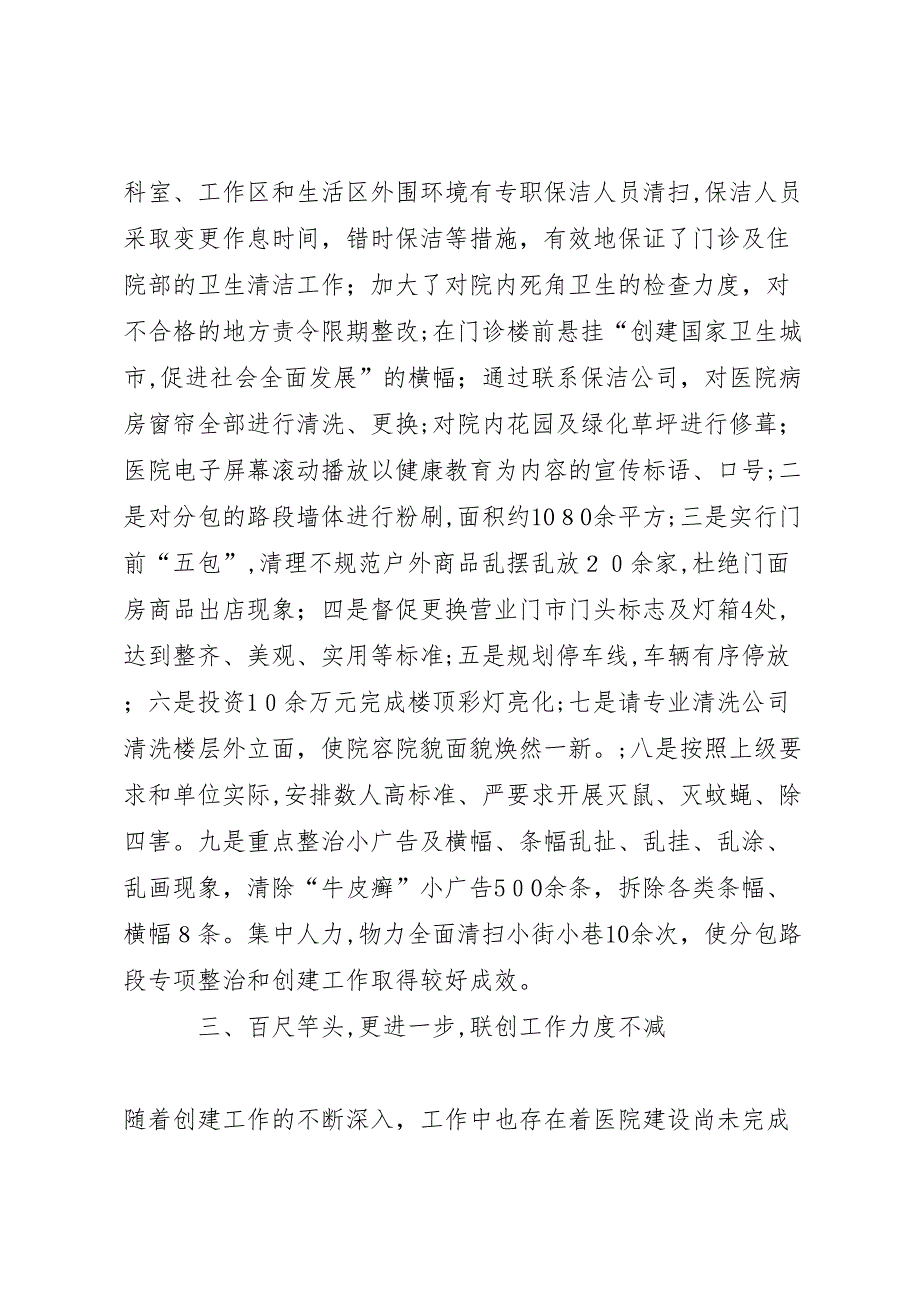 科室、工作区和生活区外围环境有专职保洁人员清扫,保洁人员
采取变更作息时间，错时保洁等措施，有效地保证了门诊及住
院部的卫生清洁工作；加大了对院内死角卫生的检查力度，对
不合格的地方责令限期整改;在门诊楼前悬挂“创建国家卫生城
市,促进社会全面发展”的横幅；通过联系保洁公司，对医院病
房窗帘全部进行清洗、更换;对院内花园及绿化草坪进行修葺；
医院电子屏幕滚动播放以健康教育为内容的宣传标语、口号;二
是对分包的路段墙体进行粉刷,面积约1080余平方;三是实行门
前“五包”,清理不规范户外商品乱摆乱放２０余家,杜绝门面
房商品出店现象；四是督促更换营业门市门头标志及灯箱4处,
达到整齐、美观、实用等标准;五是规划停车线,车辆有序停放
；六是投资10余万元完成楼顶彩灯亮化;七是请专业清洗公司
清洗楼层外立面，使院容院貌面貌焕然一新。;八是按照上级要
求和单位实际,安排数人高标准、严要求开展灭鼠、灭蚊蝇、除
四害。九是重点整治小广告及横幅、条幅乱扯、乱挂、乱涂、
乱画现象，清除“牛皮癣”小广告500余条，拆除各类条幅、
横幅８条。集中人力,物力全面清扫小街小巷10余次，使分包路
段专项整治和创建工作取得较好成效。
三、百尺竿头,更进一步,联创工作力度不减
随着创建工作的不断深入，工作中也存在着医院建设尚未完成